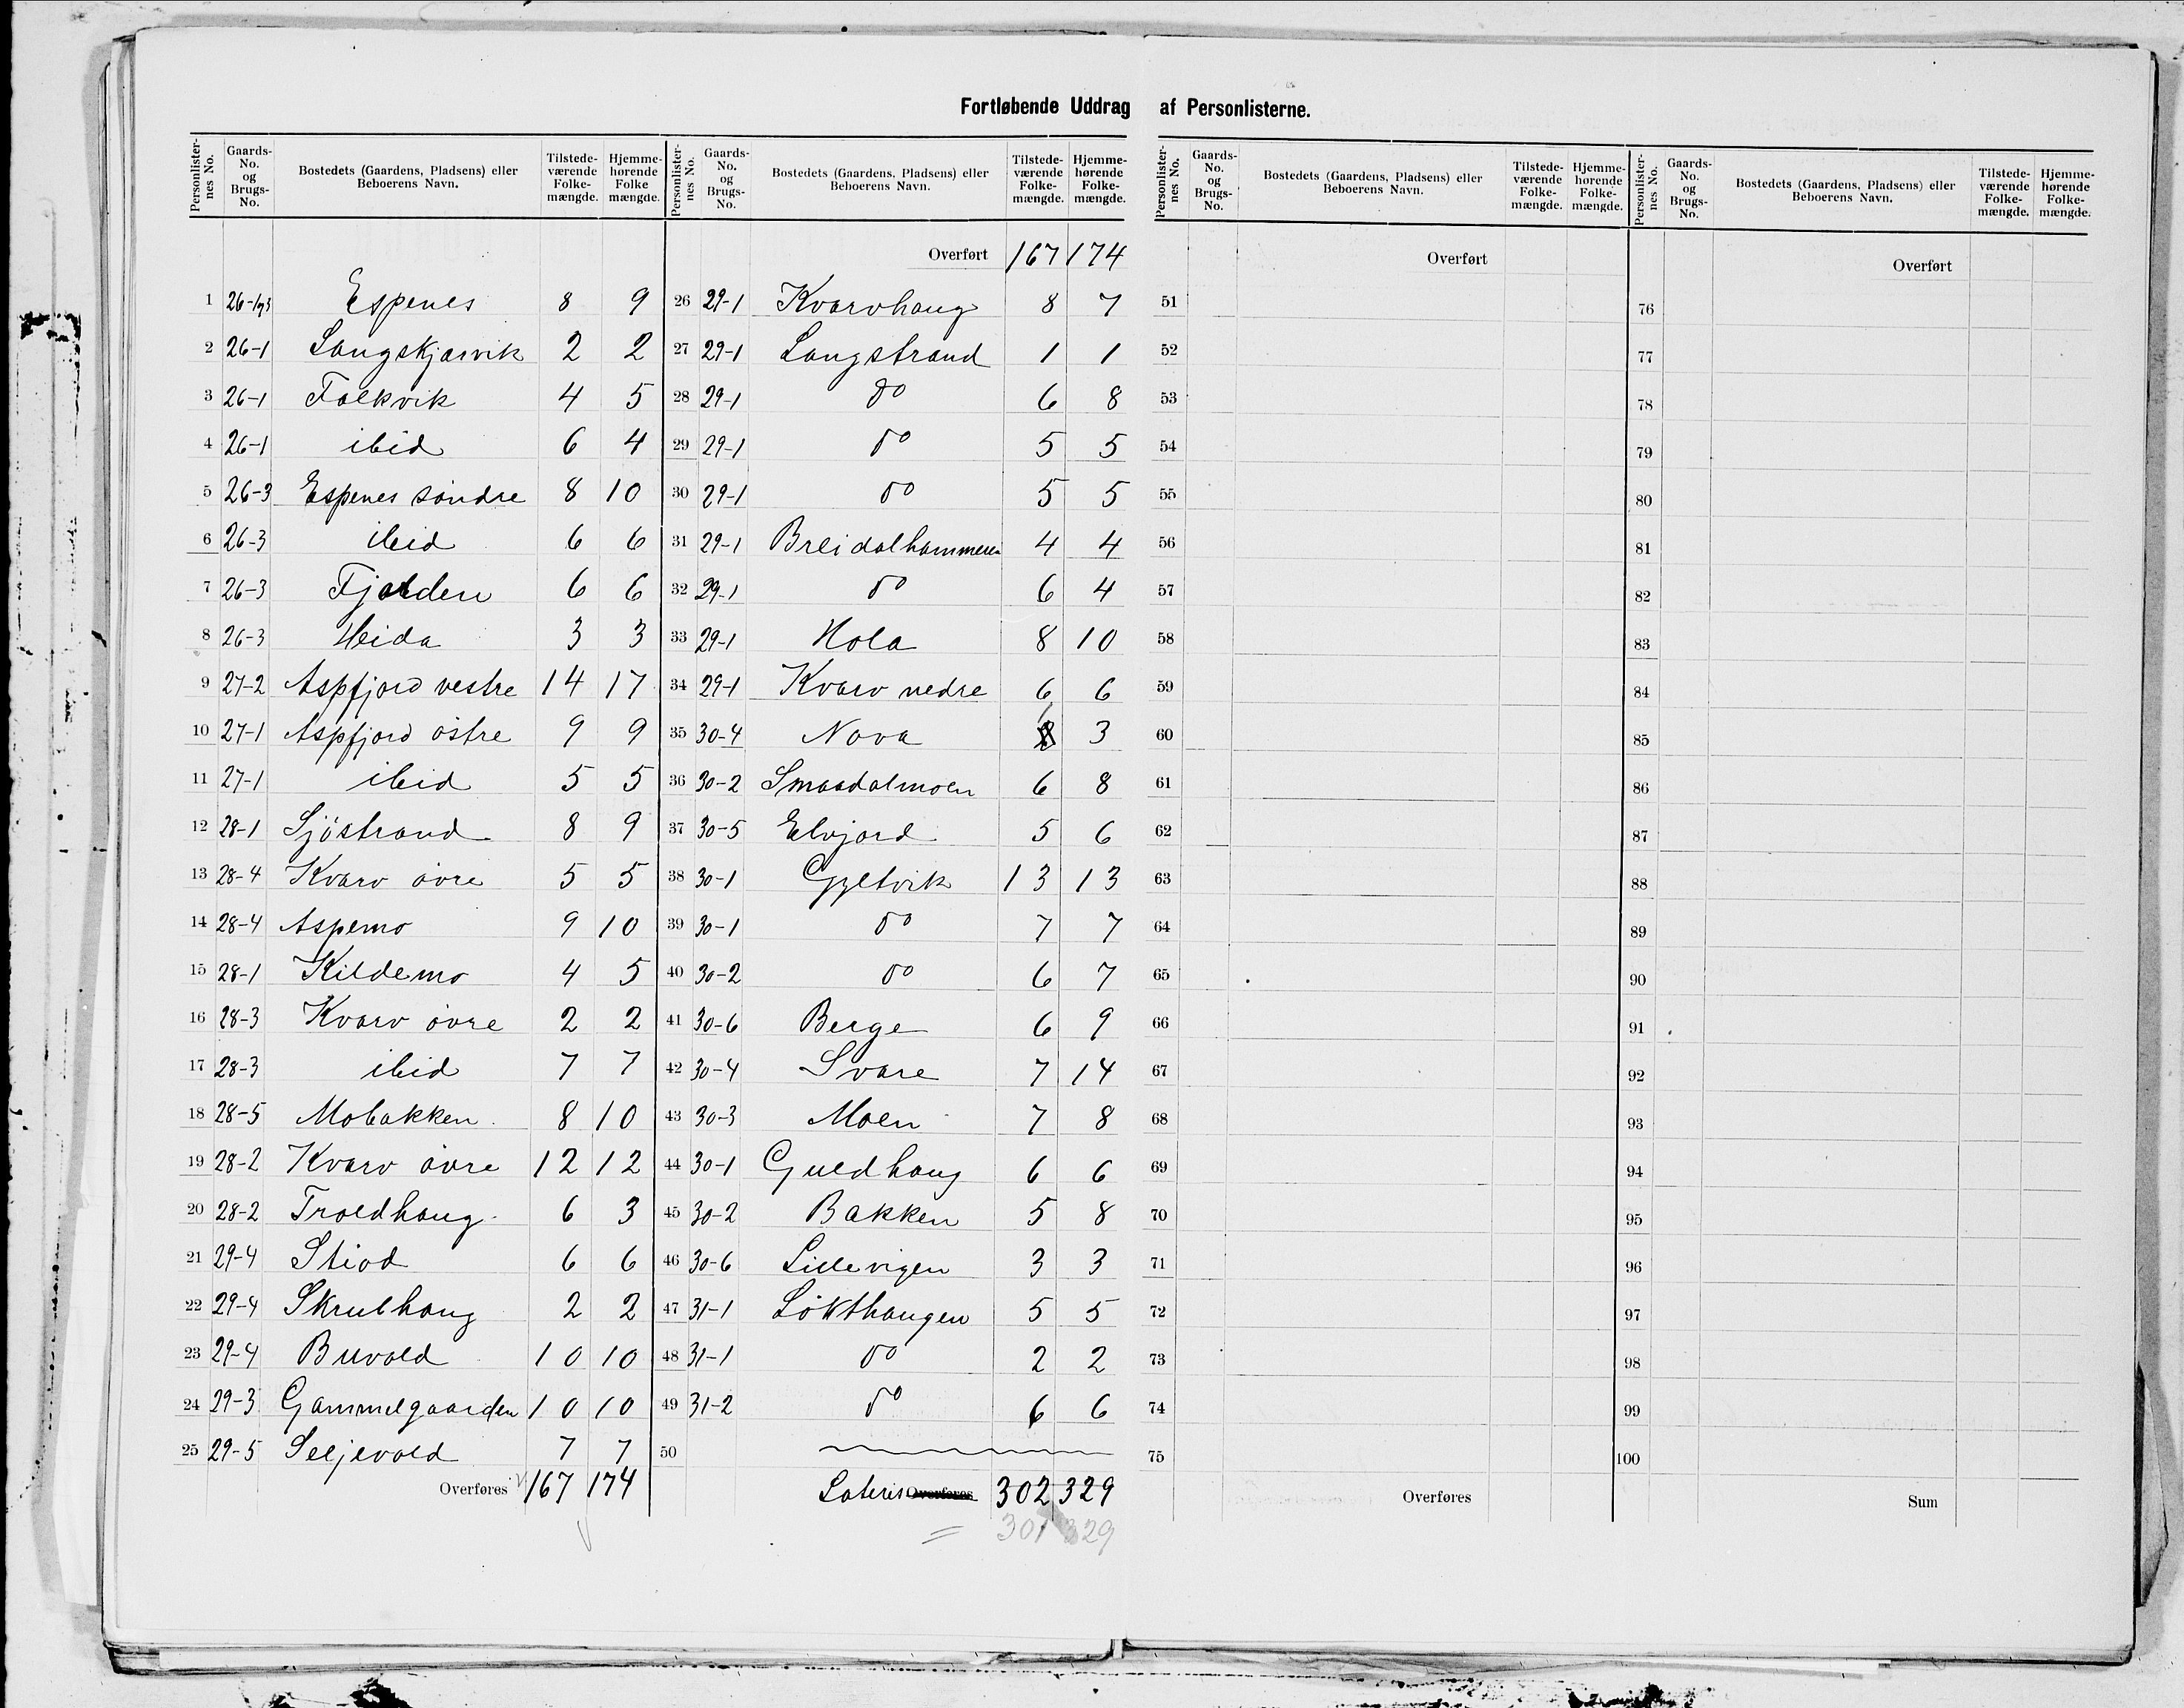 Fortløbende Uddrag af Personlisterne.
Personlisternes No. Gaards-No. og Brugs-No. Bostedets (Gaardens, Pladsens) eller Beboerens Navn. Tilstedeværende Folkemængde. Hjemmehørende Folkemængde.
1 26-1&3 Espenes 8 9
2 26-1 Langskjærvik 2 2
3 26-1 Falkvik 4 5
4 26-1 ibid 6 4
5 26-3 Espenes søndre 8 10
6 26-3 ibid 6 6
7 26-3 Fjelden 6 6
8 26-3 Heida 3 3
9 27-2 Aspfjord vestre 14 17
10 27-1 Aspfjord østre 9 9
11 27-1 ibid 5 5
12 28-1 Sjøstrand 8 9
13 28-4 Kvarv øvre 5 5
14 28-4 Aspemo 9 10
15 28-1 Kildemo 4 5
16 28-3 Kvarv øvre 2 2
17 28-3 ibid 7 7
18 28-5 Mobakken 8 10
19 28-2 Kvarv øvre 12 12
20 28-2 Troldhaug 6 3
21 29-4 Stiod 6 6
22 29-4 Skrubhaug 2 2
23 29-4 Buvold 10 10
24 29-3 Gammelgaarden 10 10
25 29-5 Seljevold 7 7
Overføres 167 174
Personlisternes No. Gaards-No. og Brugs-No. Bostedets (Gaardens, Pladsens) eller Beboerens Navn. Tilstedeværende Folkemængde. Hjemmehørende Folkemængde.
Overført 167 174
26 29-1 Kvarvhaug 8 7
27 29-1 Langstrand 1 1
28 29-1 do 6 8
29 29-1 do 5 5
30 29-1 do 5 5
31 29-1 Breidalhammeren 4 4
32 29-1 do 6 4
33 29-1 Hola 8 10
34 29-1 Kvarv nedre 6 6
35 30-4 Nova 3
36 30-2 Smaadalmoen 6 8
37 30-5 Elvjord 5 6
38 30-1 Gyltvik 13 13
39 30-1 do 7 7
40 30-2 do 6 7
41 30-6 Berge 6 9
42 30-4 Svare 7 14
43 30-3 Moen 7 8
44 30-1 Guldhaug 6 6
45 30-2 Bakken 5 8
46 30-6 Lillevigen 3 3
47 31-1 Løkthaugen 5 5
48 31-1 do 2 2
49 31-2 do 6 6
50
Lateris Overføres 302 329
= 301 329
Personlisternes No. Gaards-No. og Brugs-No. Bostedets (Gaardens, Pladsens) eller Beboerens Navn. Tilstedeværende Folkemængde. Hjemmehørende Folkemængde.
Overført
51
52
53
54
55
56
57
58
59
60
61
62
63
64
65
66
67
68
69
70
71
72
73
74
75
Overføres
Personlisternes No. Gaards-No. og Brugs-No. Bostedets (Gaardens, Pladsens) eller Beboerens Navn. Tilstedeværende Folkemængde. Hjemmehørende Folkemængde.
Overført
76
77
78
79
80
81
82
83
84
85
86
87
88
89
90
91
92
93
94
95
96
97
98
99
100
Sum